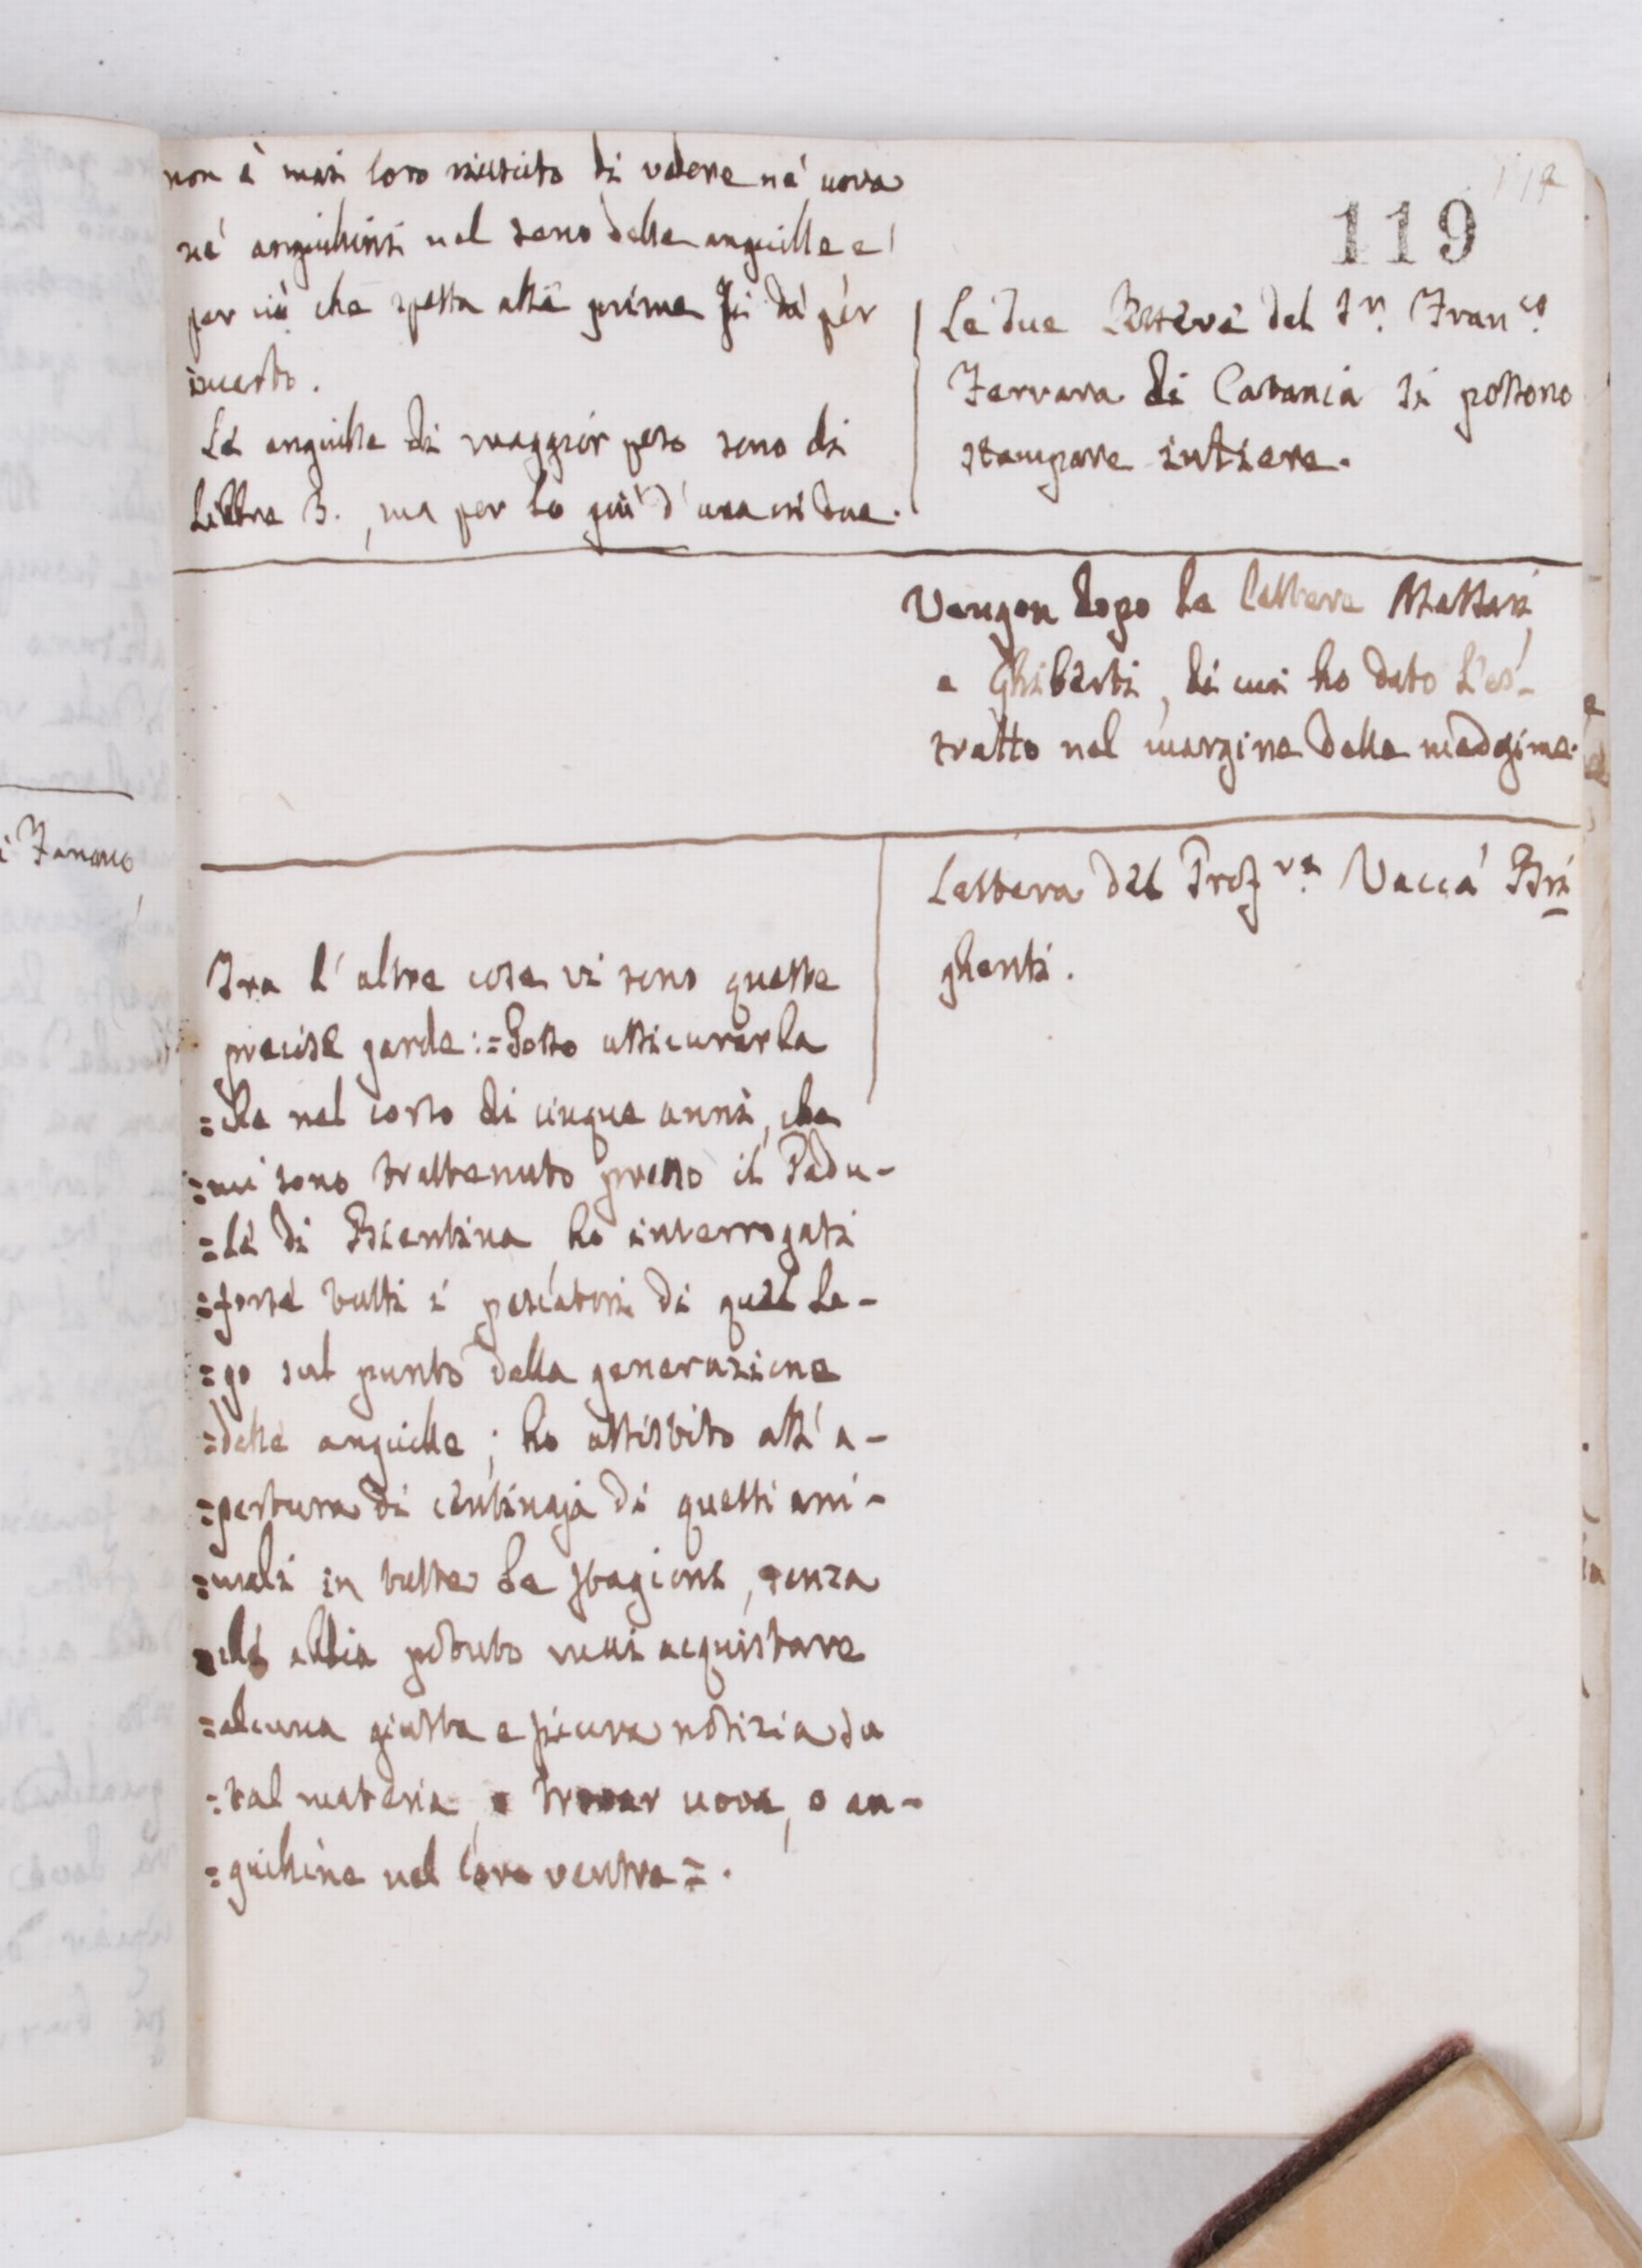 119
non è mai loro riuscito di vedere né uova
né anguilline nel seno delle anguille e
per ciò che spetta alle prime si dà per
incerto.
Le anguille di maggior peso sono di
Libbre 3., ma per lo più d'una in due.
Le due Lettere del Sr. Franco.
Ferrara di Catania si possono
stampare intiere.
Vengon dopo le lettere Mattei
e Ghiberti, di cui ho dato l'es-
tratto nel margine delle medesime.
Lettera del Profre. Vaccà Bri
ghenti.
Tra l'altre cose vi sono queste
precise parole: = Posso assicurarla
= che nel corso di cinque anni, che
= mi sono trattenuto presso il Padu-
= le di Bientina ho interrogati
= forse tutti i pescatori di quel La-
= go sul punto della generazione
= delle anguille; ho assistito all'a-
= pertura di centinaja di questi ani-
= mali in tutte le stagioni, senza
che abbia potuto mai acquistare
= alcuna giusta e sicura notizia su
= tal materia, o trovar uova, o an-
= guilline nel loro ventre = .
i Fanano